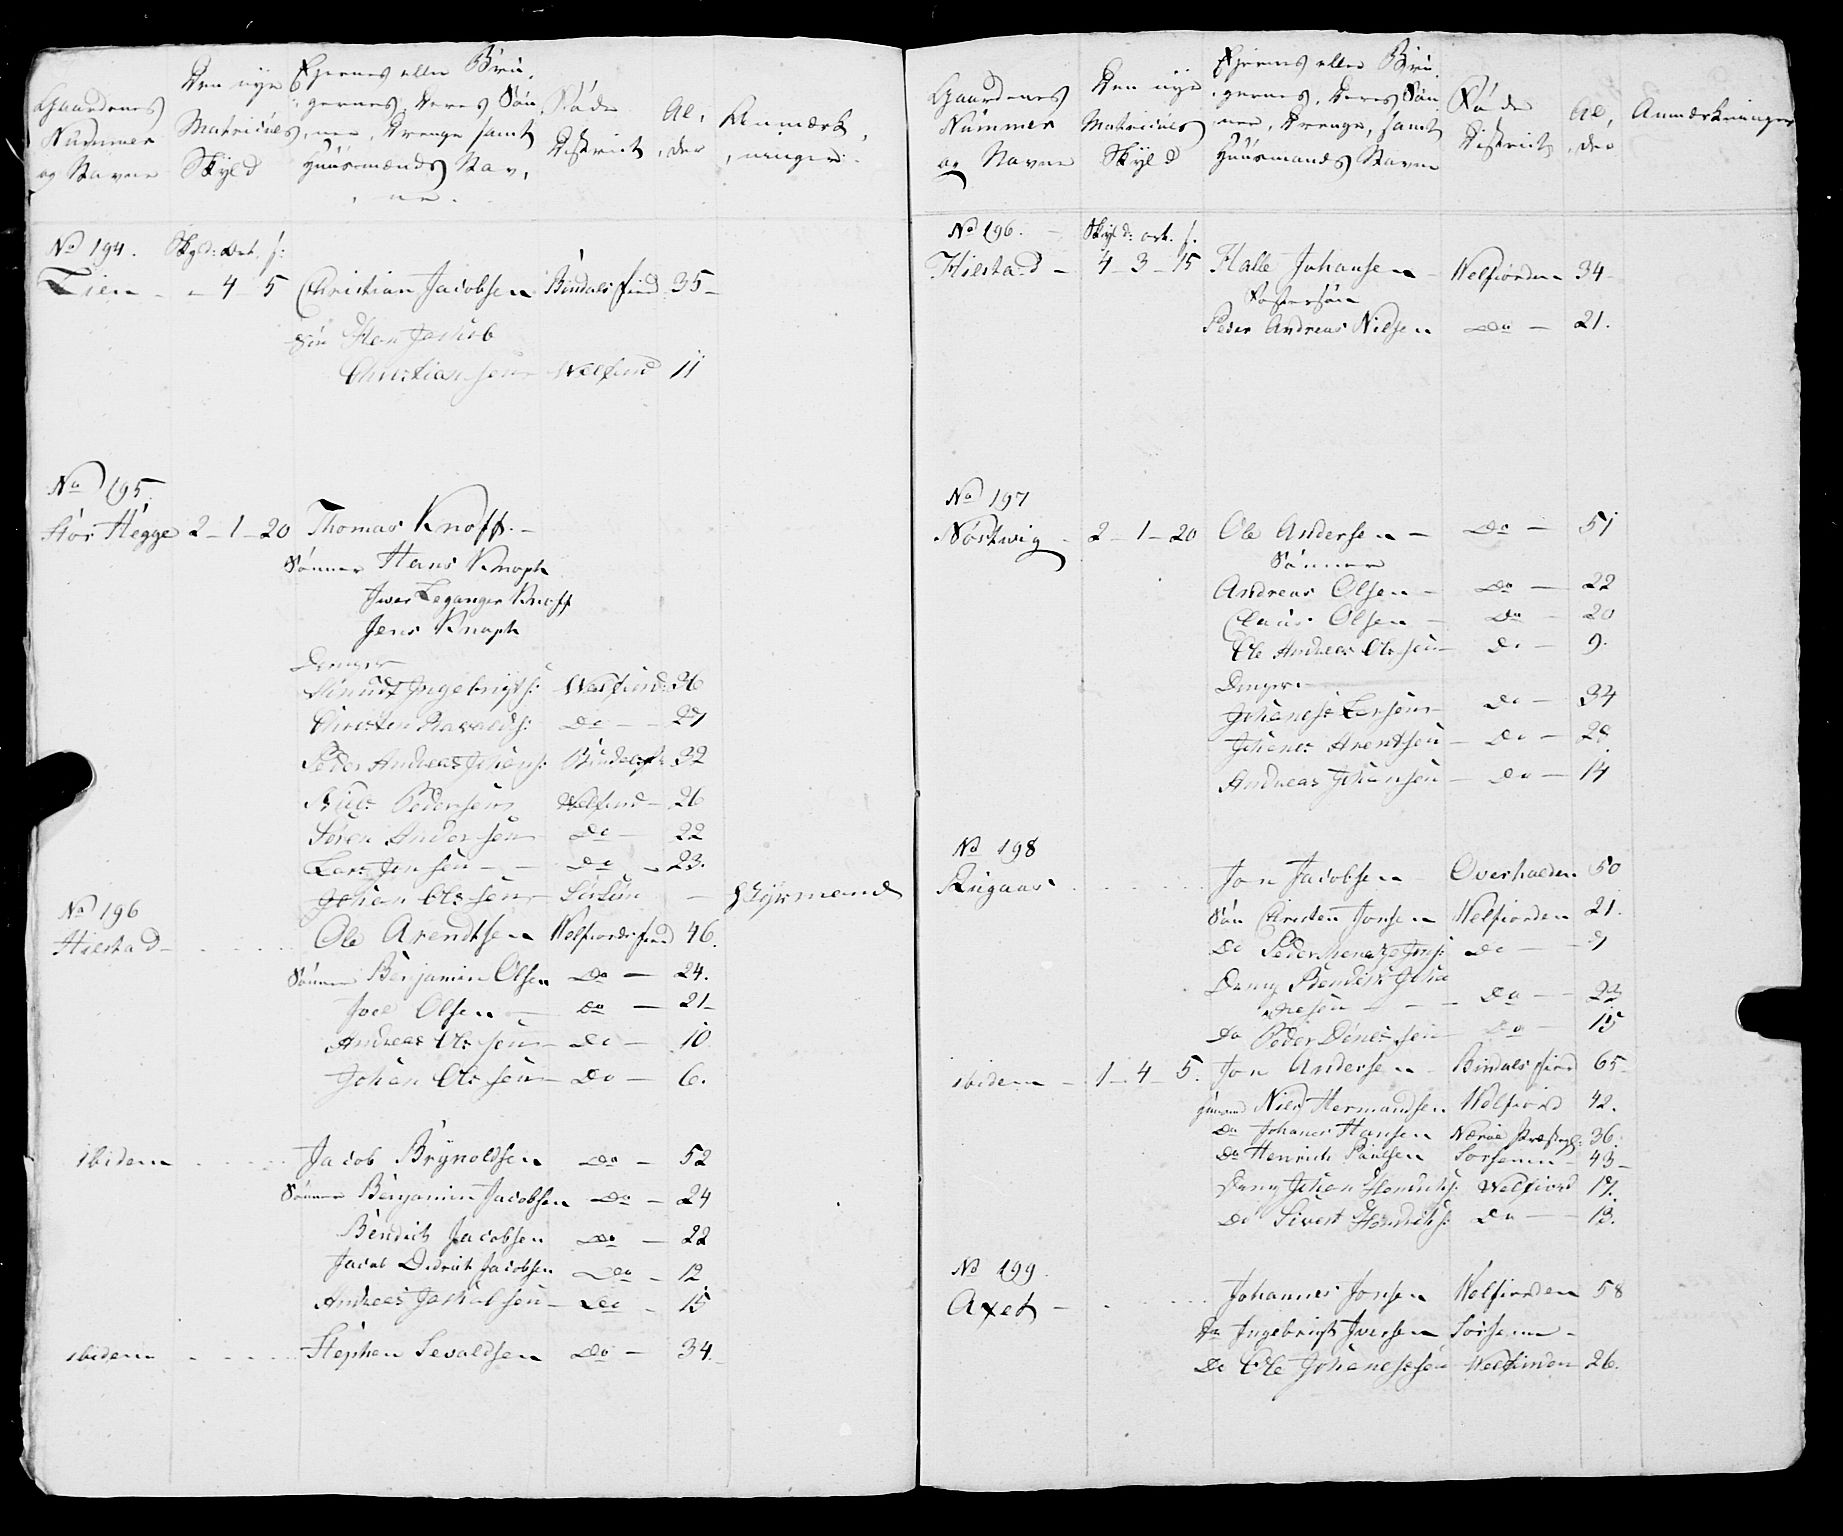 Gaardenes Nummer og Navne | Den nye Matriculs Skyld | Ejernes eller Brugernes, deres Sønner, Drenge samt Huusmænds Navne | Føde District | Alder | Anmærkninger
No 194. Skyld: ort. s:
Lien - - 4 - 5 Christian Jacobsen Bindals fierd 35 -
Søn Hans Jacob
Christiansen Welfiord 11
No 195.
Stor Hegge 2 - 1 - 20 Thomas Knoff. -
Sønner Hans Knoph
Iver Leganger Knoff
Jens Knoph
Drenger
Knudt Ingebrigts: Welfiord: 26
Christen Davids: Do - 27
Peder Andreas Johans: Bindalsf: 32
Niels Pedersen Welfiord - 26
Søren Andersen Do - 22
Lars Jonsen - - Do - 23.
Johan Olsen Sørsem - Skydsmand
No 196
Hilstad - Ole Arendtsen Welfiords fierd 46.
Sønner Benjamin Olsen Do - 24.
Joel Olsen - Do - 21 -
Andreas Olsen - Do - 10
Johan Olsen - Do - 6.
ibidem Jacob Brynoldsen Do - 52
Sønner Benjamin Jacobsen Do - 24
Bendich Jacobsen Do - 22
Jacob Didrich Jacobsen Do - 12
Andreas Jacobsen - Do - 15
ibidem Stephen Sevaldsen Do - 34 -
Gaardenes Nummer og Navne | Den nye Matriculs Skyld | Ejernes eller Brugernes, deres Sønner, Drenge, samt Huusmands Navne | Føde District | Alder | Anmærkninger
No 196. - Skyld: ort. s.
Hilstad - 4 - 3 - 15 Halle Johansen - Welfiorden 34 -
Fostersøn
Peder Andreas Nielsen Do - 21.
No 197
Nøstwig - 2 - 1 - 20 Ole Andersen - Do - 51
Sønner
Andreas Olsen - Do - 22
Claus Olsen - Do - 20
Ole Andreas Olsen Do - 9.
Drenger
Johanes Larsen Do - 34
Johanes Arentsen - Do - 28
Andreas Johansen - Do - 14
No 198
Rugaas Jon Jacobsen - Overhalden 50
Søn Christen Jonsen Welfiorden 21.
Do Peder Jons: Do - 9
Dreng Bendich Johanesen - - Do - 22
Do Peder Sen Do - 15
ibidem - 1 - 4 - 5. Jon Andersen - Bindals fierd 65 -
Huusmd Niels Hermandsen Welfiord 42.
Do Johanes Hansen Nærøe Præstegl: 36.
Do Henrich Paulsen Sørsemn - 43 -
Dreng Johan Henrichs: Welfiord 17.
Do Sivert Henrichs: Do - 13.
No 199.
Axet - Johannes Jonsen Welfiorden 58
Do Ingebrigt Iversen Sørsemn -
Do Ole Johannesen Welfiorden 26.